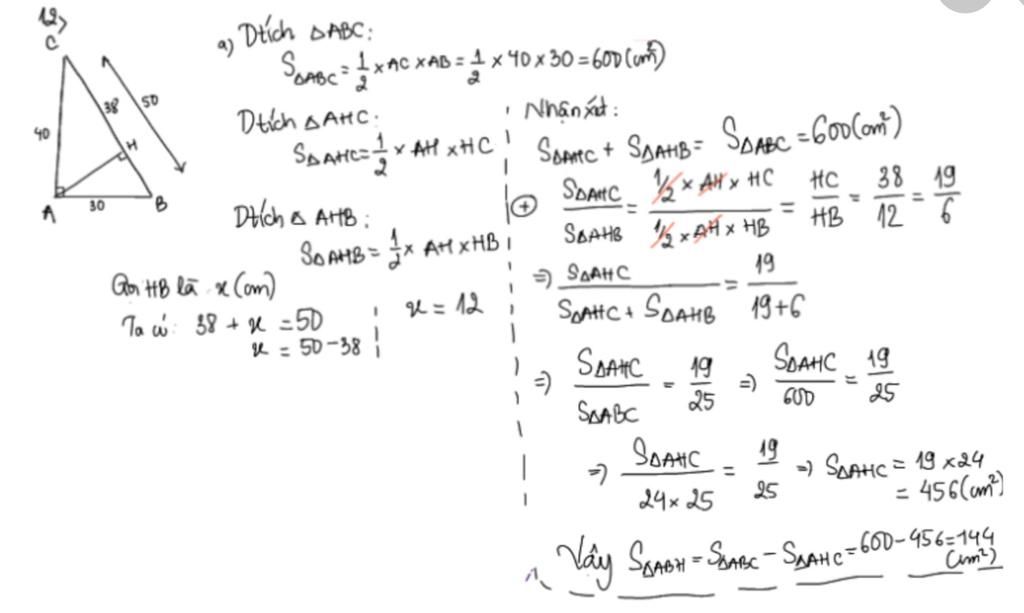 12)
C
40
38
50
H
A
30
B
a) Dtích △ABC:
S△ABC = 1/2 × AC × AB = 1/2 × 40 × 30 = 600 (cm²)
Dtích △AHC:
S△AHC = 1/2 × AH × HC
Dtích △ AHB:
S△AHB = 1/2 × AH × HB
Gọi HB là x (cm)
Ta có: 38 + x = 50
x = 50 - 38
x = 12
Nhận xét:
S△AHC + S△AHB = S△ABC = 600 (cm²)
⊕ S△AHC / S△AHB = (1/2 × AH × HC) / (1/2 × AH × HB) = HC/HB = 38/12 = 19/6
⇒ S△AHC / (S△AHC + S△AHB) = 19 / (19+6)
⇒ S△AHC / S△ABC = 19/25 ⇒ S△AHC / 600 = 19/25
⇒ S△AHC / (24 × 25) = 19/25 ⇒ S△AHC = 19 × 24
= 456 (cm²)
Vậy S△ABH = S△ABC - S△AHC = 600 - 456 = 144
(cm²)